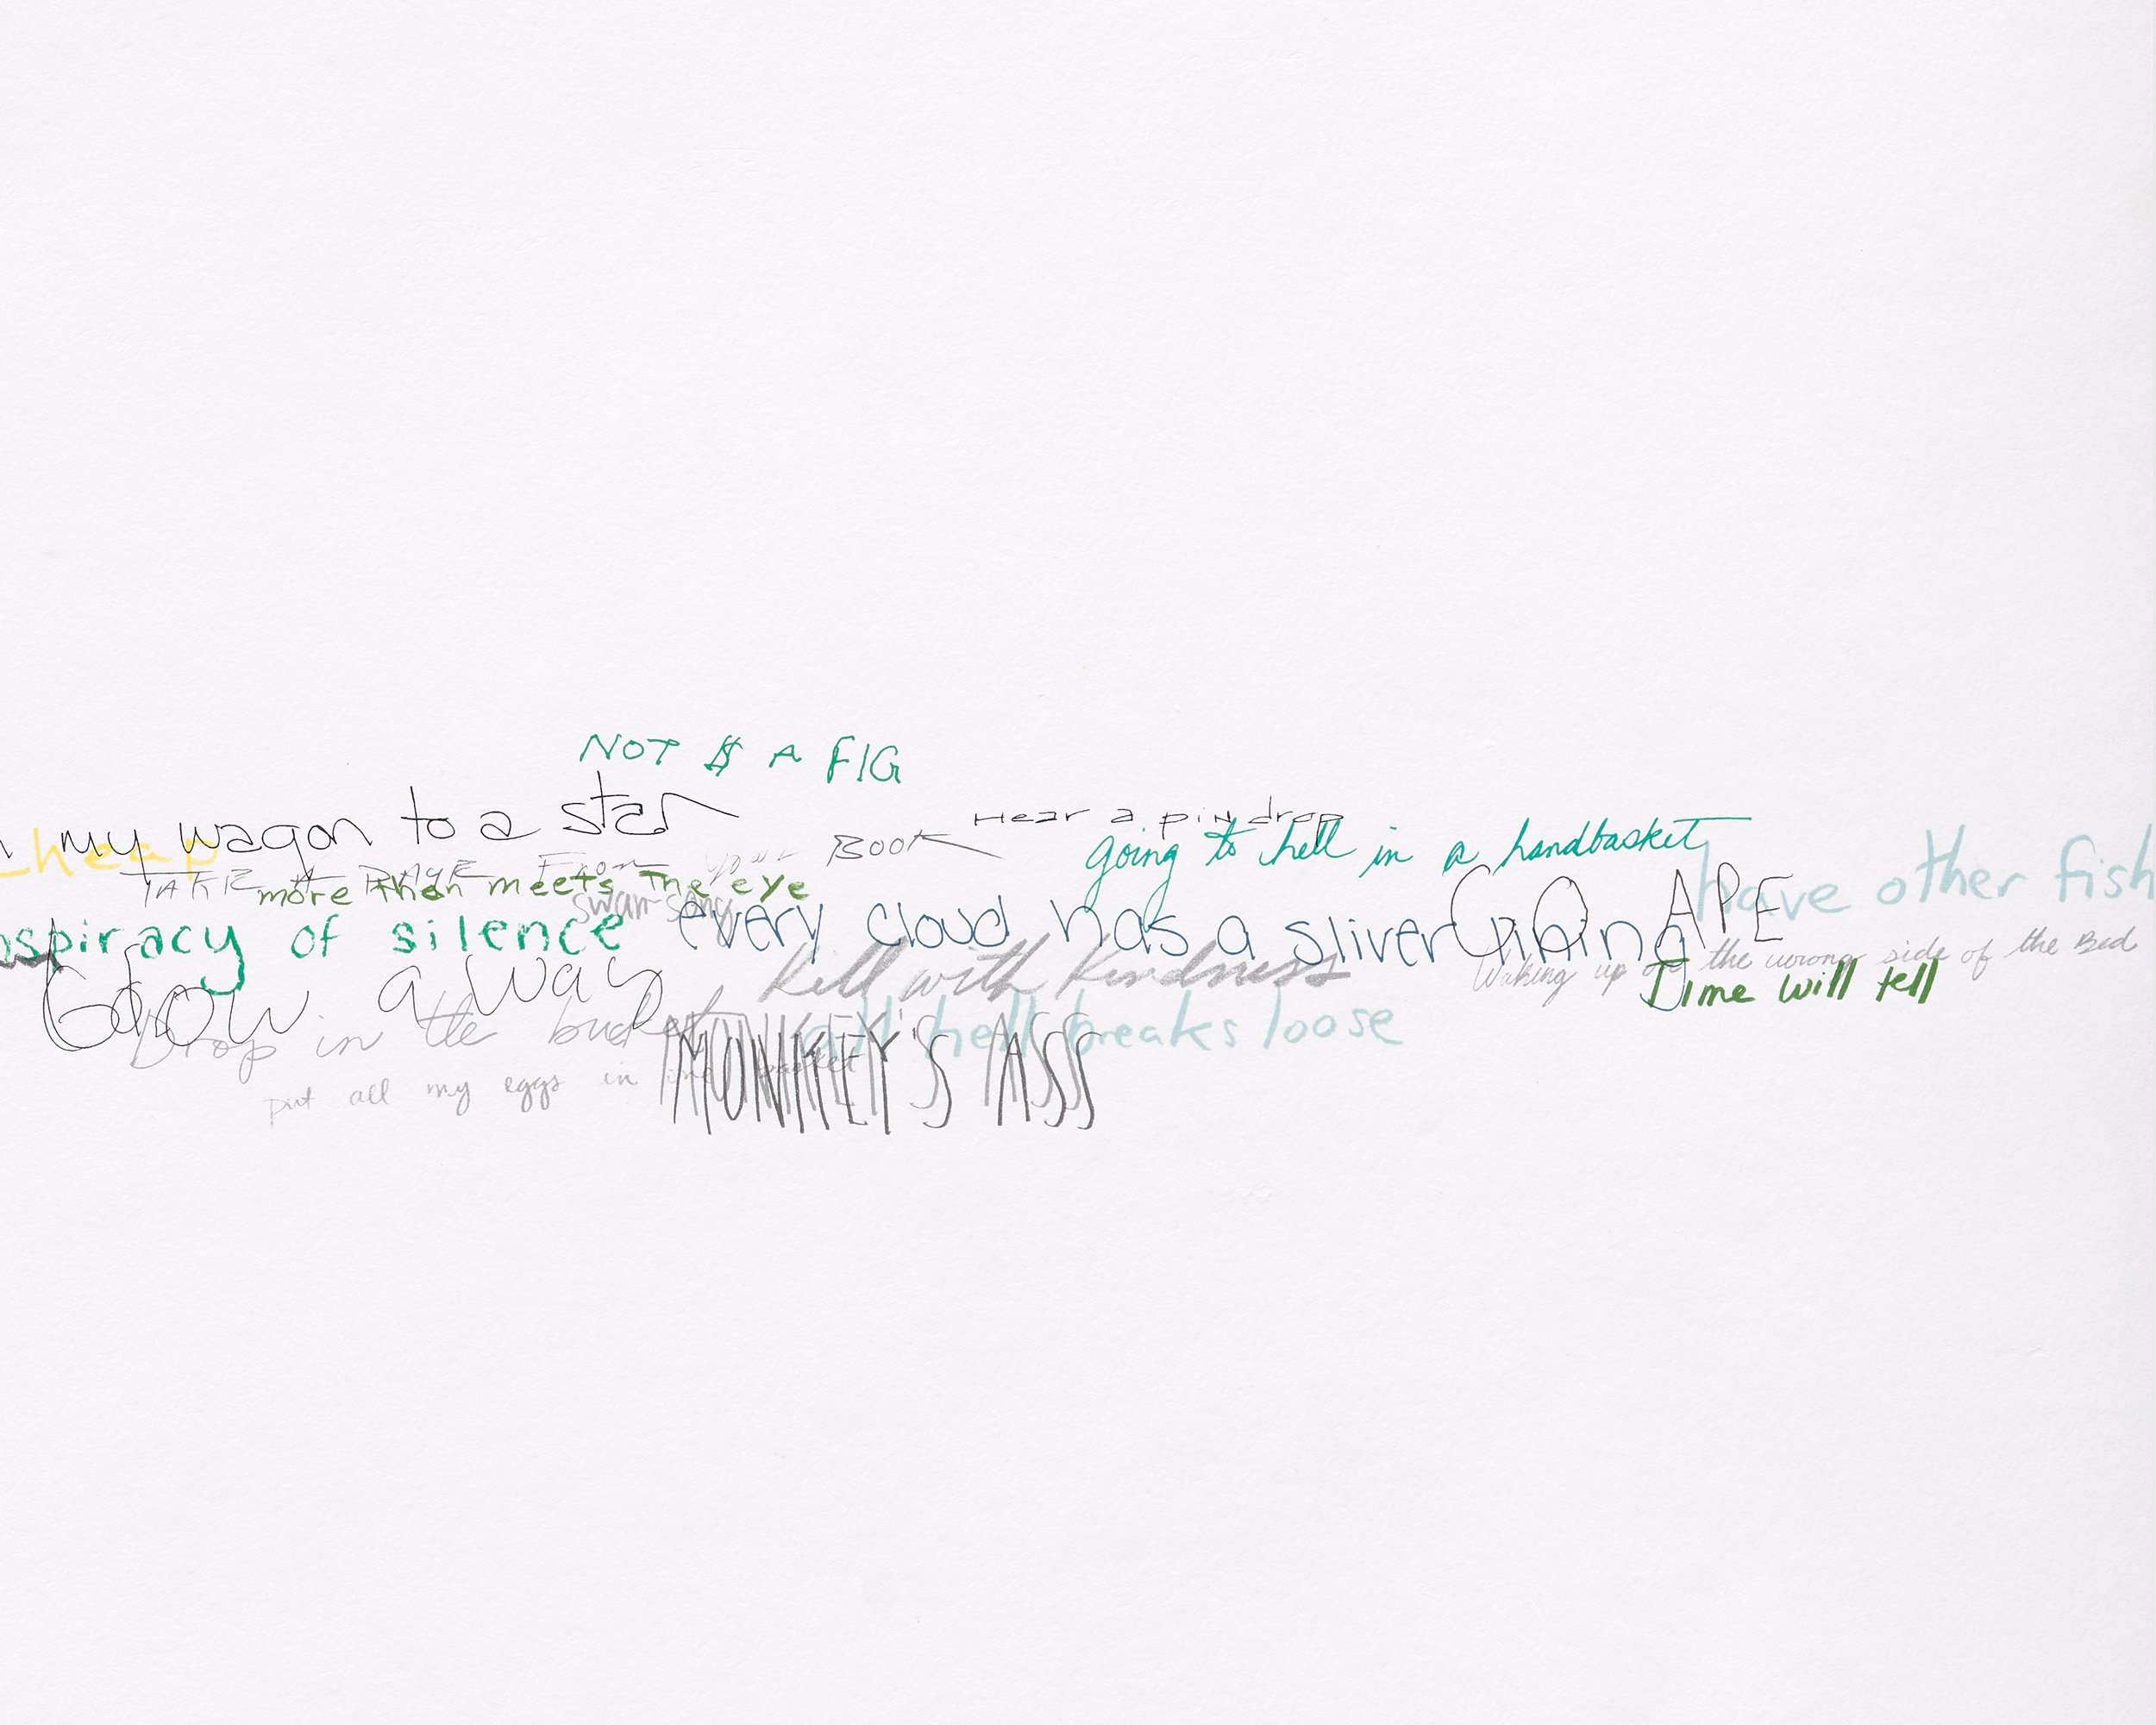 NOT $ A FIG
my wagon to a star
Hear a pin drop
cheap
TAKE A PAGE From your BOOK
going to hell in a handbasket
more than meets The eye
have other fish
swan song
GO APE
spiracy of silence
every cloud has a sliver lining
Waking up on the wrong side of the Bed
Blow away
kill with kindness
Time will tell
Drop in the bucket
all hell breaks loose
put all my eggs in one basket
MONKEY'S ASS